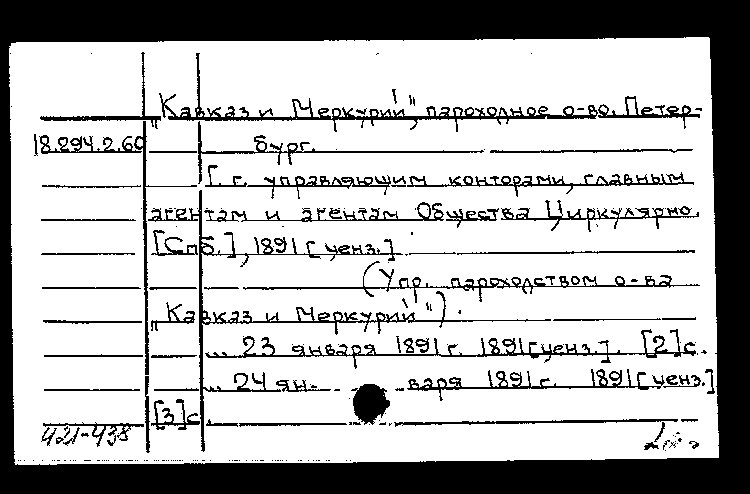 „Кавказ и Меркурий", пароходное о-во. Петер-
18.294.2.60 бург.
Г.г. управляющим конторами, главным
агентам и агентам Общества. Циркулярно.
[Спб.], 1891 [ценз.]
(Упр. пароходством о-ва
„Кавказ и Меркурий").
... 23 января 1891 г. 1891 [ценз.]. [2] с.
... 24 ян- варя 1891 г. 1891 [ценз.]
[3] с.
421-438